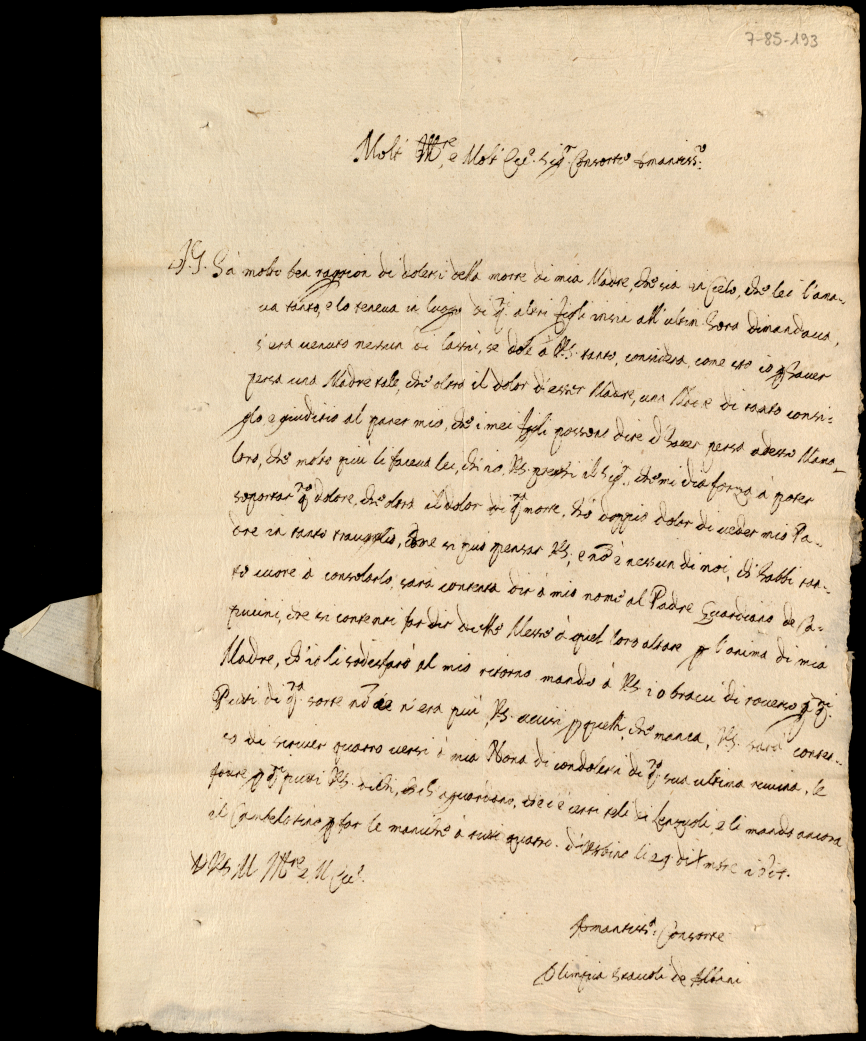 7-85-193
Molt Ill.re e Molt Ecc.e Sig.r Consorte Amantiss.o
V.S. hà molto ben raggion di dolersi della morte di mia Madre, che sia in Cielo, che lei l'ama-
va tanto, e lo teneva in luogo di q.i altri figli insin all'ultim hora dimandava,
s'era venuto nessun di la se dole à V.S. tanto, consideri, come sto io p haver
persa una Madre tale, che oltro il dolor d'esser Madre, una di tanto consi-
glio e giuditio al parer mio, che i mei figli possono dire d'haver perso adesso
loro, che molto più li faceva lei, ch'io, V.S. preghi il Sig.r, che mi dia forza à poter
soportar q.o dolore, che oltro il dolor di q.a morte, hò doppio dolor di veder mio Pa-
dre in tanto travaglio, come si può pensar V.S., e nō è nessun di noi, ch'habbi tan-
to cuore à consolarlo, sarà contenta dir à mio nome al Padre Guardiano de Ca-
puccini, che si contenti far dir Messe à quel loro altare p l'anima di mia
Madre, ch'io li sodisfarò al mio ritorno mando à V.S. 10 bracci di roverso p q.ni
Putti di q.a sorte nō ce n'era più, V.S. avisi p quell, che manca, V.S. sarà conten-
to di scriver quatro versi à mia Nona di condolersi di q.a sua ultima ruvina, le
p q.i putti V.S. che ci è certi teli di Lenzuoli, e li mando ancora
il Cambelotino p far le maniche à tutti quatro. d'Urbino li 29 di
D V.S. M Ill.re e M Ecc.e
Amantiss.a Consorte
Olimpia Staccoli de Albani